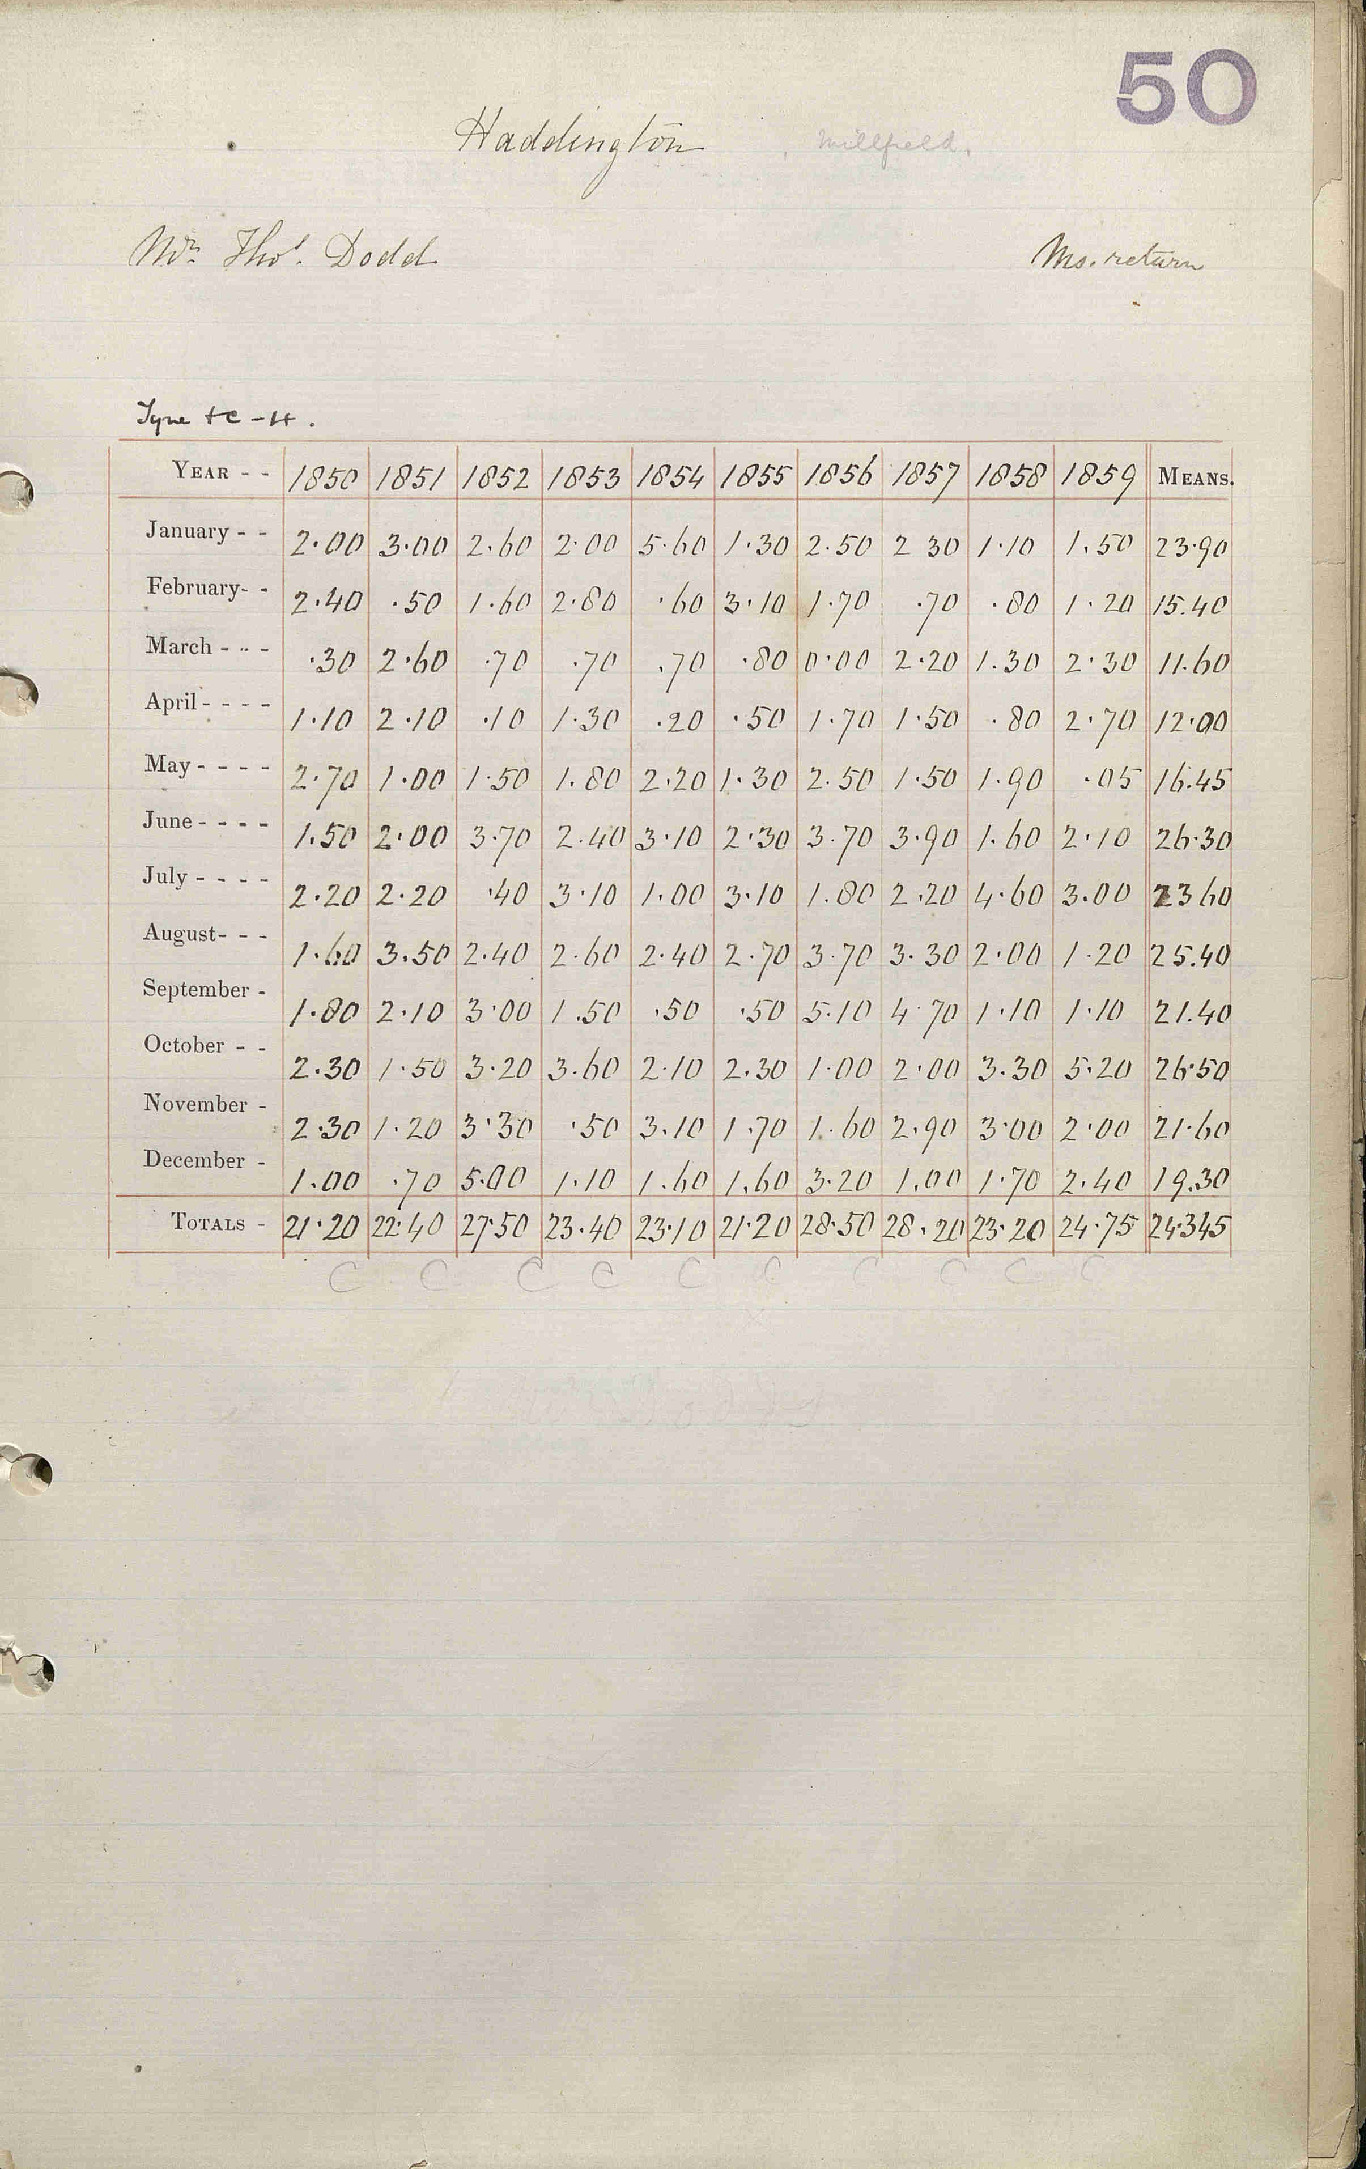 50
Haddington Millfield.
Mr. Thos. Dodd Ms. return
Tyne + C - H.
YEAR - - 1850 1851 1852 1853 1854 1855 1856 1857 1858 1859 MEANS.
January - - 2.00 3.00 2.60 2.00 5.60 1.30 2.50 2 30 1.10 1.50 23.90
February- - 2.40 .50 1.60 2.80 .60 3.10 1.70 .70 .80 1.20 15.40
March - - - .30 2.60 .70 .70 .70 .80 0.00 2.20 1.30 2.30 11.60
April - - - - 1.10 2.10 .10 1.30 .20 .50 1.70 1.50 .80 2.70 12.00
May - - - - 2.70 1.00 1.50 1.80 2.20 1.30 2.50 1.50 1.90 .05 16.45
June - - - - 1.50 2.00 3.70 2.40 3.10 2.30 3.70 3.90 1.60 2.10 26.30
July - - - - 2.20 2.20 .40 3.10 1.00 3.10 1.80 2.20 4.60 3.00 23 60
August- - - 1.60 3.50 2.40 2.60 2.40 2.70 3.70 3.30 2.00 1.20 25.40
September - 1.80 2.10 3.00 1.50 .50 .50 5.10 4.70 1.10 1.10 21.40
October - - 2.30 1.50 3.20 3.60 2.10 2.30 1.00 2.00 3.30 5.20 26.50
November - 2.30 1.20 3.30 .50 3.10 1.70 1.60 2.90 3.00 2.00 21.60
December - 1.00 .70 5.00 1.10 1.60 1.60 3.20 1.00 1.70 2.40 19.30
TOTALS - 21.20 22.40 27.50 23.40 23.10 21.20 28.50 28.20 23.20 24.75 24.345
C C C C C C C C C C